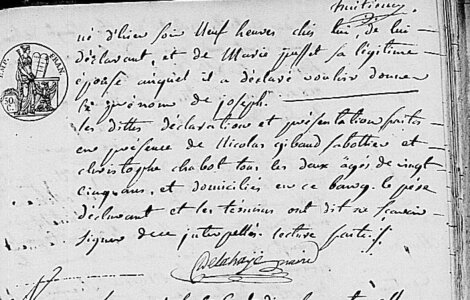 huitième
né d'hier soir neuf heures chés lui, de lui
déclarant, et de Marie jusset sa légitime
épouse auquel il a déclaré vouloir donner
le prénom de joseph.
les dittes déclaration et présentation faites
en présence de Nicolas gibaud sabottier et
christophe chabot tous les deux âgés de vingt
cinq ans, et domiciliés en ce bourg. le père
déclarant et les témoins ont dit ne savoir
signer de ce interpellés. lecture faite.
Delahaye
EMP. FRAN.